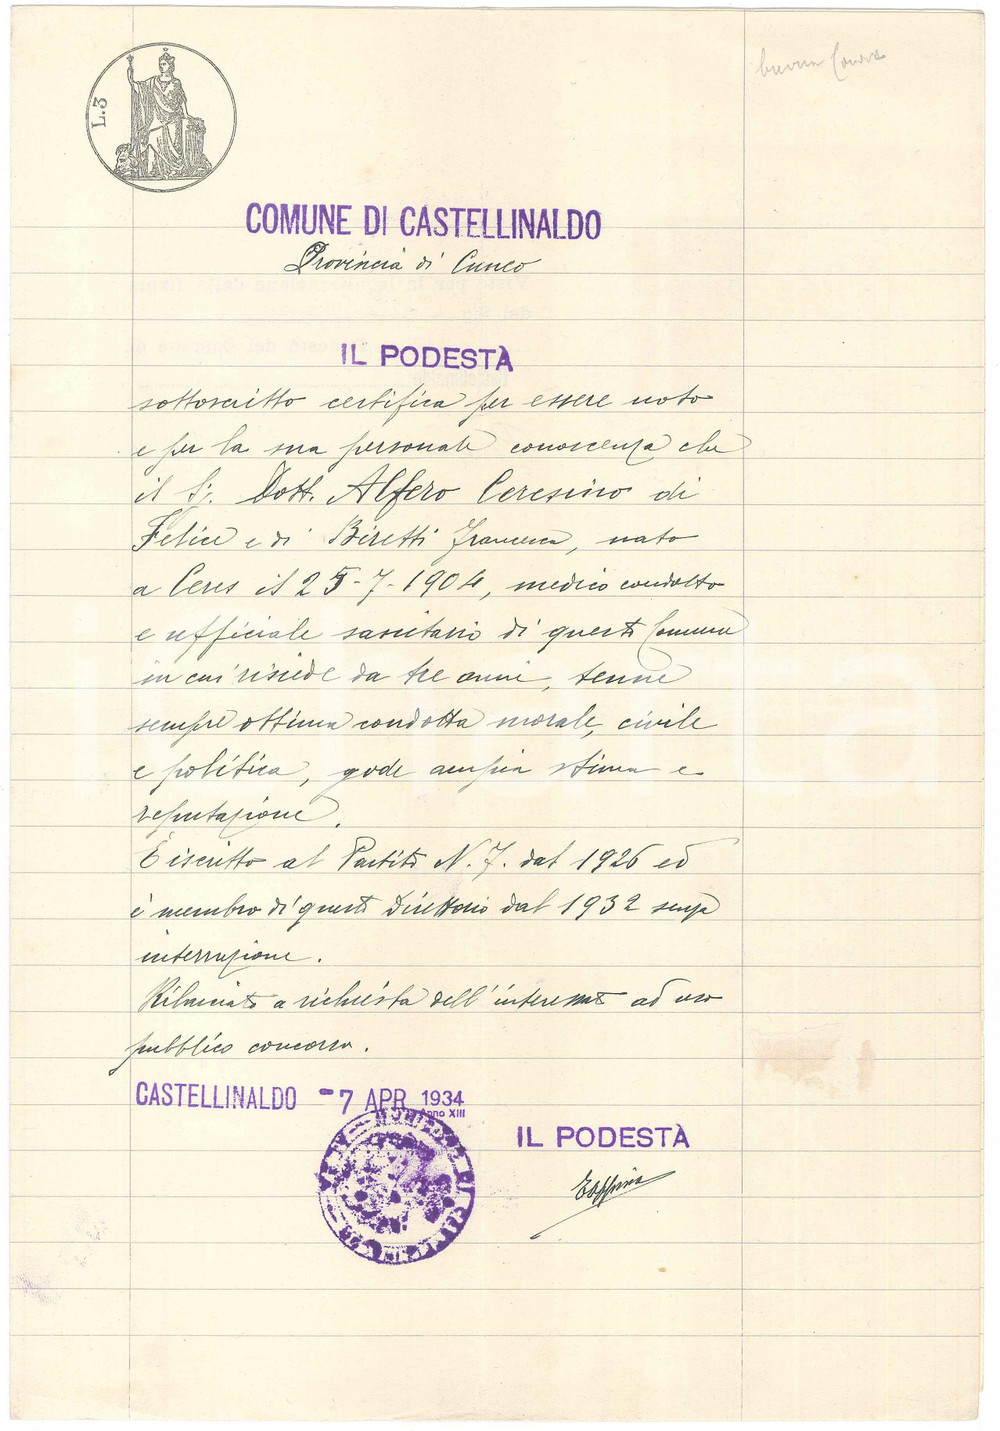 L.3
COMUNE DI CASTELLINALDO
Provincia di Cuneo
IL PODESTÀ
sottoscritto certifica per essere noto
e per la sua personale conoscenza che
il Sig. Dott. Alfero Ceresino di
Felice e di Biretti Francesca, nato
a Ceres il 25-7-1904, medico condotto
e ufficiale sanitario di questo Comune
in cui risiede da tre anni, tenne
sempre ottima condotta morale, civile
e politica, gode ampia stima e
reputazione.
È iscritto al Partito N.F. dal 1926 ed
è membro di questo Direttorio dal 1932 senza
interruzione.
Rilasciato a richiesta dell'interessato ad uso
pubblico concorso.
CASTELLINALDO -7 APR 1934
Anno XIII
IL PODESTÀ